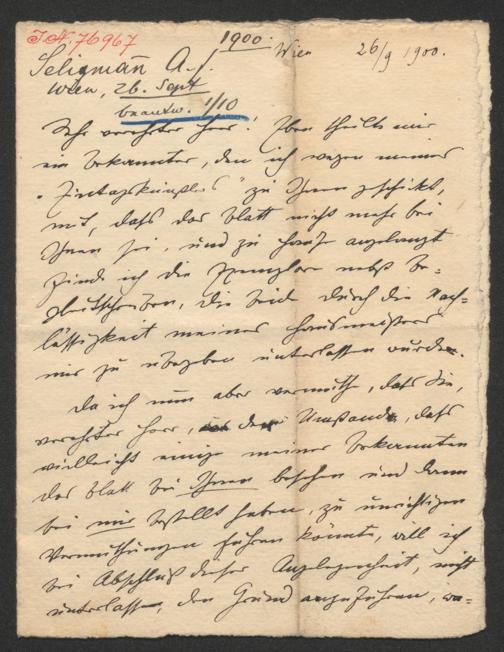 I.N. 76967
1900.
Wien 26/9 1900.
Seligmann A. f.
Wien, 26. Sept
beantw. 1/10
Sehr verehrter Herr! Eben theilte mir
ein Bekannter, den ich wegen meines
" zu Ihnen geschickt,
mit, daß das Blatt nicht mehr bei
Ihnen sei, und zu Hause angelangt
finde ich die Exemplare nebst Be-
gleitschreiben, die beide durch die Nach-
lässigkeit meines Hausmeisters
mir zu übergeben unterlassen wurde.
Da ich nun aber vermuthe, daß Sie,
verehrter Herr, Umstande, daß
vielleicht einige meiner Bekannten
das Blatt bei Ihnen besehen und dann
bei mir bestellt haben, zu unrichtigen
Vermuthungen führen könnte, will ich
bei Abschluß dieser Angelegenheit, nicht
unterlassen, den Grund anzuführen, wa-